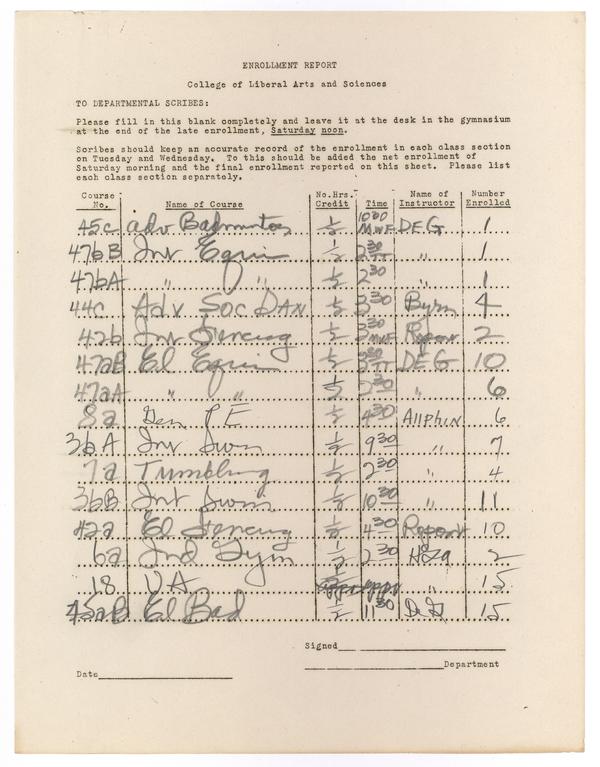 ENROLLMENT REPORT
College of Liberal Arts and Sciences
TO DEPARTMENTAL SCRIBES:
Please fill in this blank completely and leave it at the desk in the gymnasium
at the end of the late enrollment, Saturday noon.
Scribes should keep an accurate record of the enrollment in each class section
on Tuesday and Wednesday. To this should be added the net enrollment of
Saturday morning and the final enrollment reported on this sheet. Please list
each class section separately.
Course No. Name of Course No.Hrs. Credit Time Name of Instructor Number Enrolled
45c Adv Badminton 1/2 10 30 MWF DEG 1
47bB Int Equi 1/2 2 30 TT " 1
47bA " " 1/2 2 30 " 1
44c Adv Soc DAN 1/2 3 30 4
42b Int Fencing 1/2 3 30 MWF 2
47aB El Equi 1/2 2 30 TT DEG 10
47aA " " 1/2 2 30 " 6
8a Gen PE 1/2 4 30 Allphin 6
36A Int Swim 1/2 9 30 " 7
7a Tumbling 1/2 2 30 " 4
36B Int Swim 1/2 10 30 " 11
42a El Fencing 1/2 4 30 10
6a Ind Gym 1/2 2 30 2
18 VA " 15
45aB El Bad 1/2 11 30 15
Signed
Department
Date